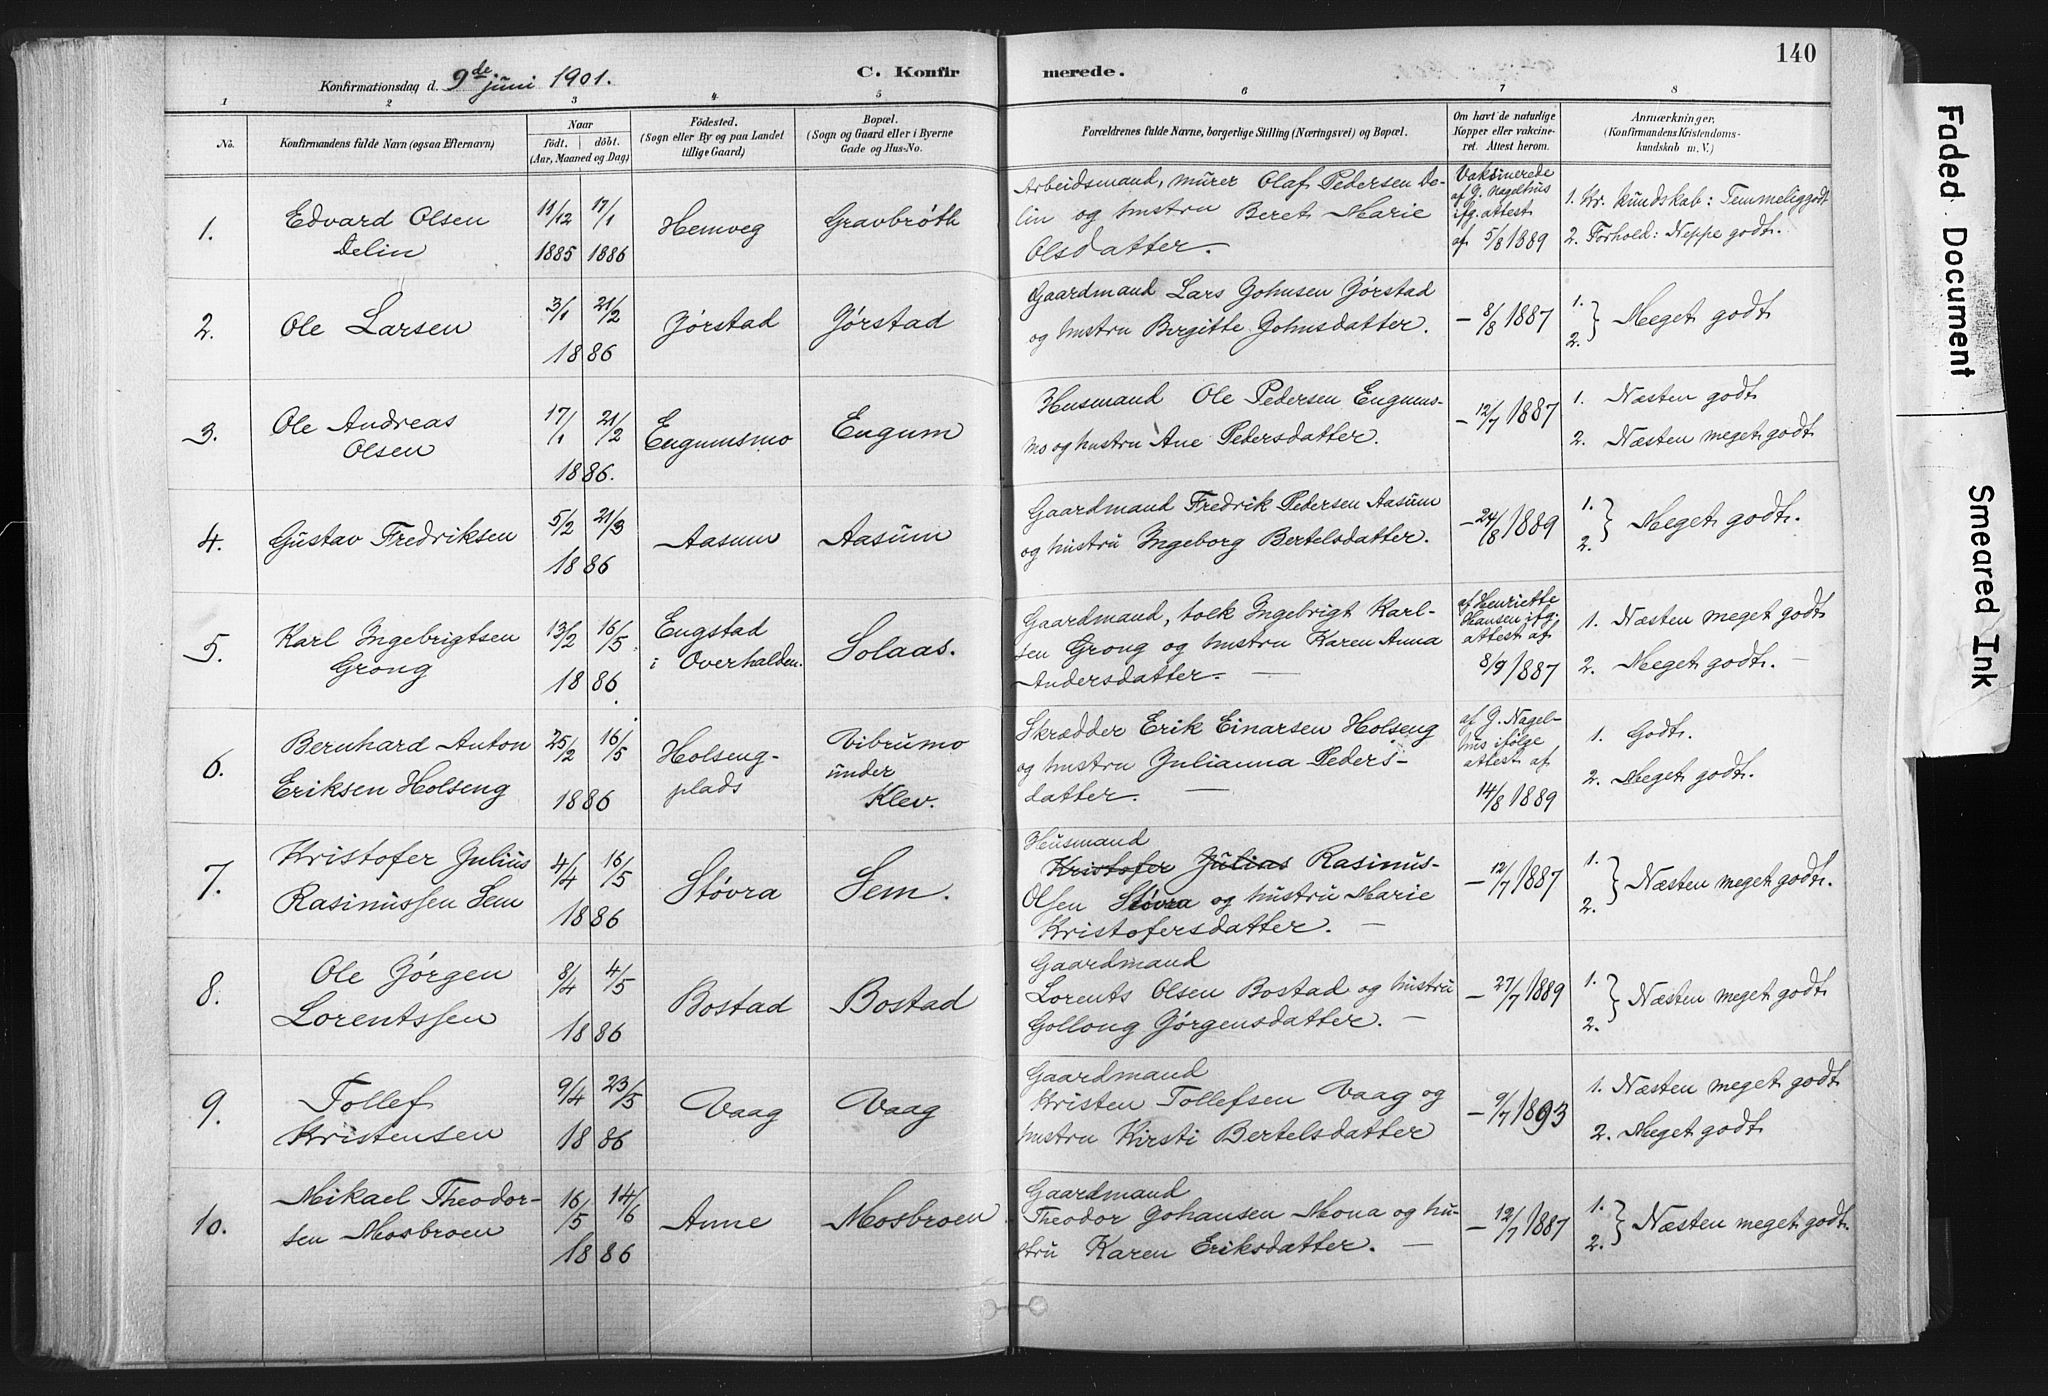 140
Konfirmationsdag d. 9de juni 1901.
C. Konfirmerede.
1 2 3 4 5 6 7 8
No. Konfirmandens fulde Navn (ogsaa Efternavn) Naar födt. döbt. (Aar, Maaned og Dag) Födested. (Sogn eller By og paa Landet tillige Gaard) Bopæl. (Sogn og Gaard eller i Byerne Gade og Hus-No. Forældrenes fulde Navne, borgerlige Stilling (Næringsvei) og Bopæl. Om havt de naturlige Kopper eller vakcineret. Attest herom. Anmærkninger, (Konfirmandens Kristendomskundskab m. V.)
1. Edvard Olsen Delin 11/12 1885 17/1 1886 Hemveg Gravbrøth
Arbeidsmand, mürer Olaf Pedersen De-
lin og hustru Beret Marie
Olsdatter.
Vaksinerede af J. Nagelhus ifg. attest af 5/8 1889
1. Kr. kundskab: Temmelig godt
2. Forhold: Neppe godt.
2. Ole Larsen 3/1 21/2 1886 Jørstad Jørstad
Gaardmand Lars Johnsen Jørstad
og hustru Birgitte Johnsdatter.
– 8/8 1887
1. 2. } Meget godt
3. Ole Andreas Olsen 17/1 21/2 1886. Engumsmo Engum
Husmand Ole Pedersen Engums-
mo og hustru Ane Pedersdatter.
– 12/7 1887
1. Næsten godt
2. Næsten meget godt
4. Gustav Fredriksen 5/2 21/3 1886 Aasum Aasüm
Gaardmand Fredrik Pedersen Aasüm
og hustrü Ingeborg Bertelsdatter.
– 24/8 1889
1. 2. } Meget godt.
5. Karl Ingebrigtsen Grong 13/2 16/5 1886. Engstad i Overhalden. Solaas.
Gaardmand, tolk Ingebrigt Karl-
sen Grong og hustru Karen Anna
Andersdatter. —
af Henriette Hansen ifg. attest af 8/9 1887
1. Næsten meget godt
2. Meget godt. —
6. Bernhard Anton Eriksen Holseng 25/2 16/5 1886 Holseng-
plads Vibrumo ünder Klev.
Skrædder Erik Einarsen Holseng
og hustru Julianna Peders-
datter. —
af J. Nagel-
hus ifølge attest af 14/8 1889
1. Godt.
2. Meget godt.
7. Kristofer Julius Rasmussen Sem 4/4 16/5 1886 Støvra Sem.
Husmand
Kristofer Julias Rasmus-
Olsen Støvra og hustrü Marie
Kristofersdatter. —
– 12/7 1887
1. 2. } Næsten meget godt.
8. Ole Jørgen Lorentssen 8/4 4/5 1886 Bostad Bostad
Gaardmand
Lorents Olsen Bostad og hustrü
Gollong Jørgensdatter. —
– 27/7 1889
1. 2. } Næsten meget godt
9. Tollef Kristensen 9/4 23/5 1886 Vaag Vaag
Gaardmand
Kristen Tollefsen Vaag og
hustru Kirsti Bertelsdatter
– 9/7 1893
1. Næsten meget godt
2. Meget godt
10. Mikael Theodor-
sen Mosbroen 16/5 14/6 1886 Anne Mosbroen
Gaardmand
Theodor Johansen Mona og hu-
strü Karen Eriksdatter. —
– 12/7 1887
1. 2. } Næsten meget godt
Faded Document
Smeared Ink